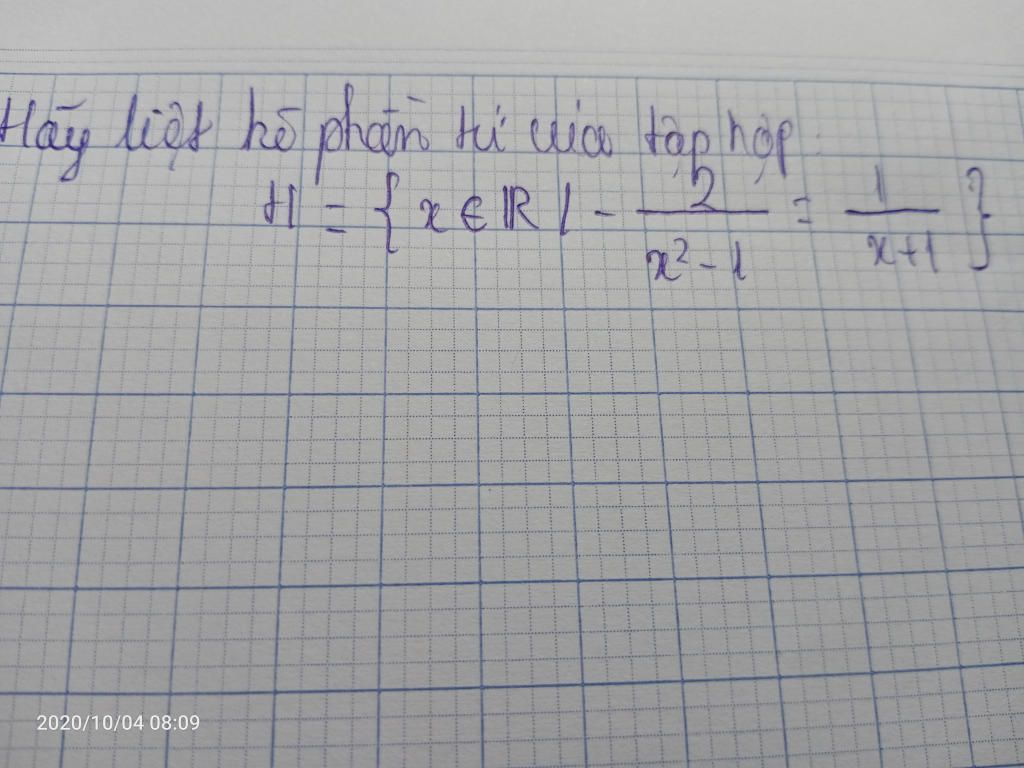 Hãy liệt kê phần tử của tập hợp.
H = { x ∈ ℝ | - 2/(x² - 1) = 1/(x+1) }
2020/10/04 08:09